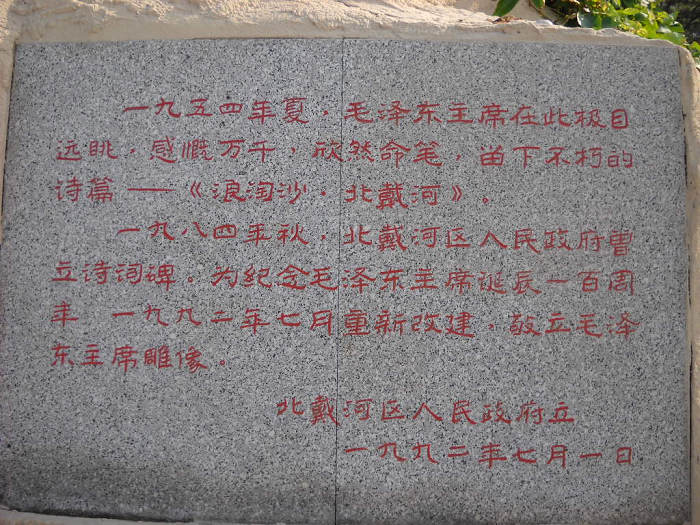 一九五四年夏，毛泽东主席在此极目
远眺，感慨万千，欣然命笔，留下不朽的
诗篇——《浪淘沙·北戴河》。
一九八四年秋，北戴河区人民政府曾
立诗词碑。为纪念毛泽东主席诞辰一百周
年 一九九二年七月重新改建，敬立毛泽
东主席雕像。
北戴河区人民政府立
一九九二年七月一日